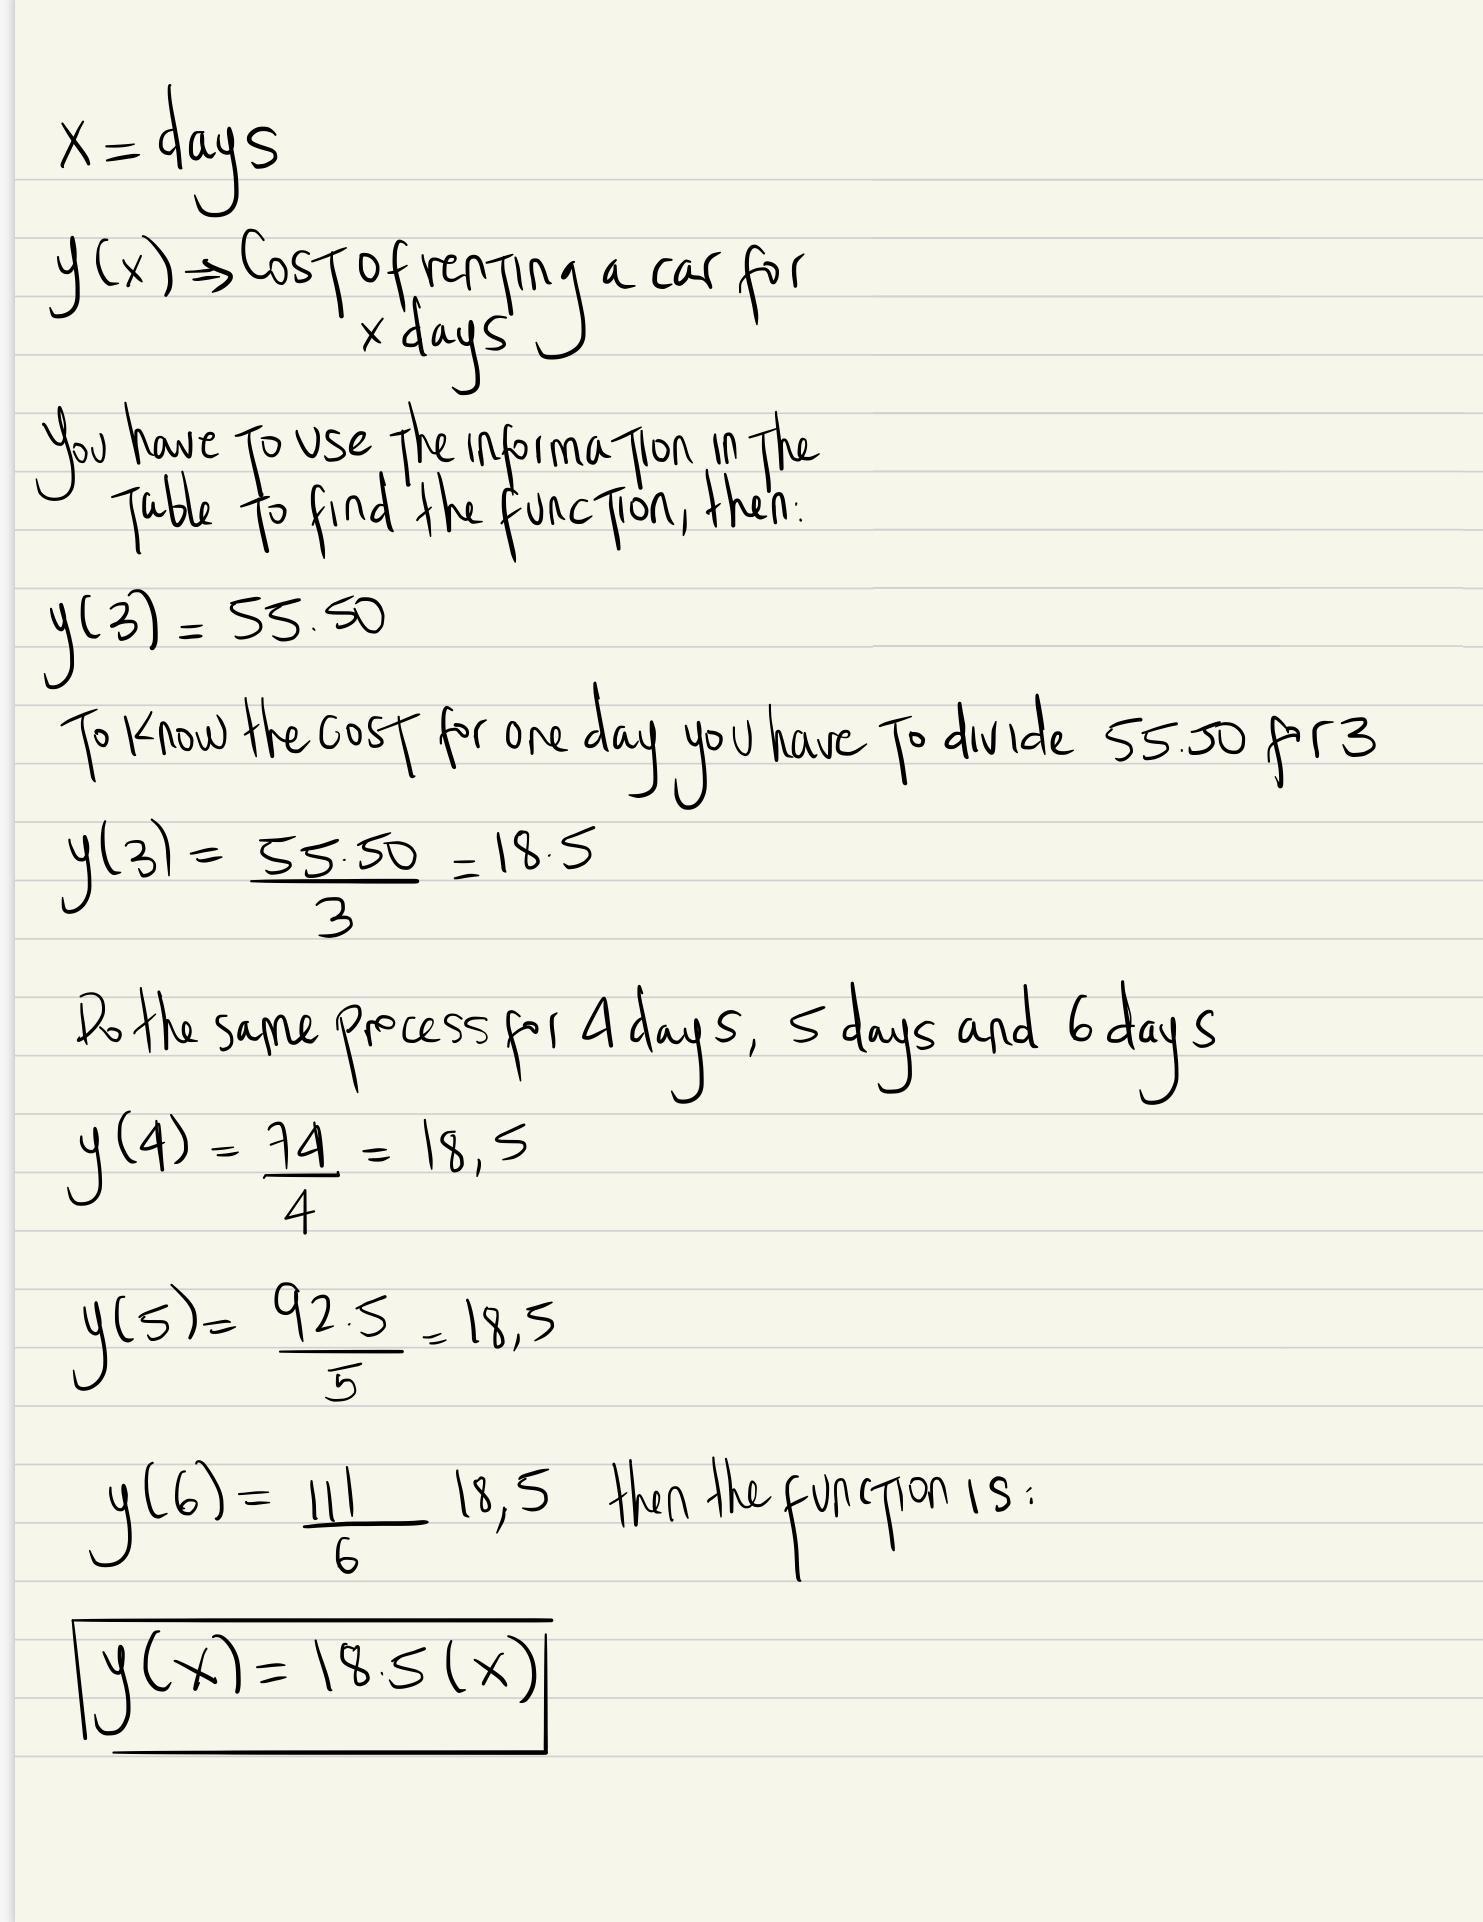 x = days
y(x) ⇒ Cost of renting a car for
x days
You have to use the information in the
table to find the function, then:
y(3) = 55.50
To know the cost for one day you have to divide 55.50 for 3
y(3) = 55.50/3 = 18.5
Do the same process for 4 days, 5 days and 6 days
y(4) = 74/4 = 18,5
y(5) = 92.5/5 = 18,5
y(6) = 111/6 18,5 then the function is:
y(x) = 18.5 (x)